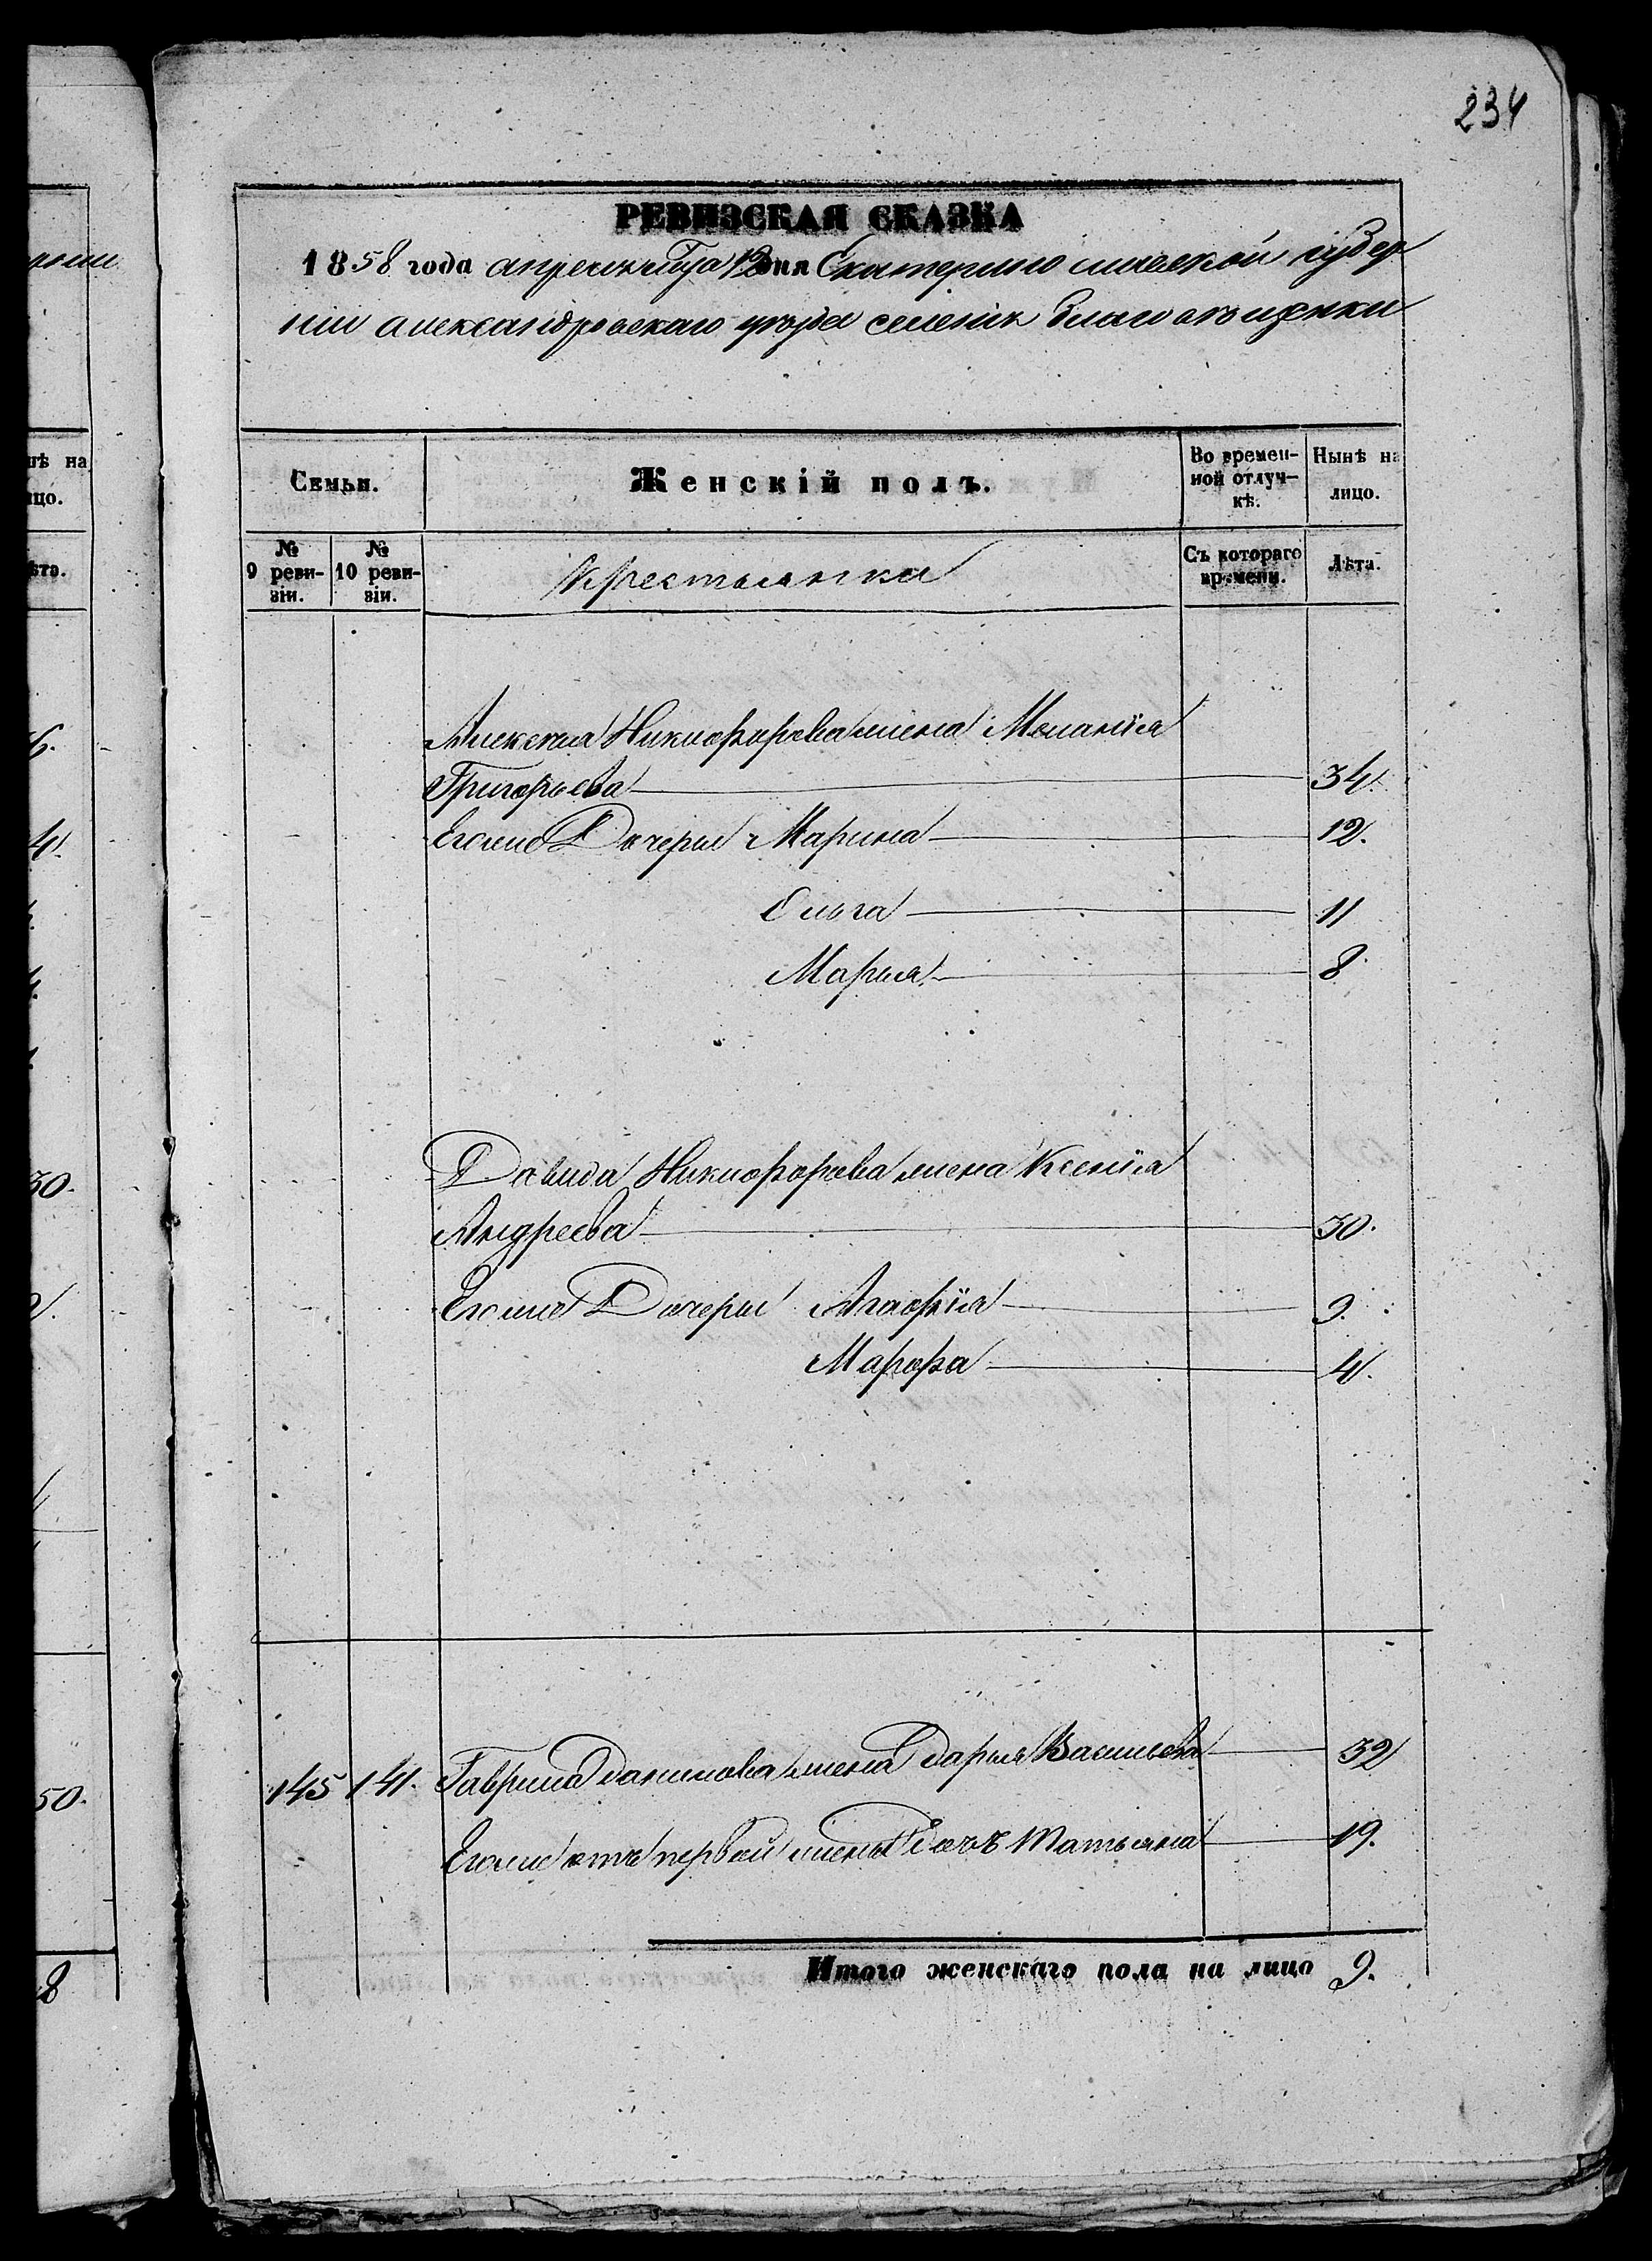 234
РЕВИЗСКАЯ СКАЗКА
1858 года апреля 12 дня Екатеринославской губер
нии александровскаго уѣзда селенія благовѣщенки
Семьи.
Женскій полъ.
Во времен-
ной отлуч-
кѣ.
Нынѣ на
лицо.
№
9 реви-
зіи.
№
10 реви-
зіи.
Крестьянка
Съ котораго
времени.
Лѣта.
Алексея Никифорова жена Меланія
Григорьева 34.
Егоже Дочери Марина 12.
Ольга 11
Марья 8
Давида Никифорова жена Ксенія
Андреева 30.
Егоже Дочери Агафія 9.
Марфа 4.
145 141. Гаврила данилова жена дарья Васильева 32
Егоже отъ первой жены дочь Татьяна 19.
Итого женскаго пола на лицо 9.